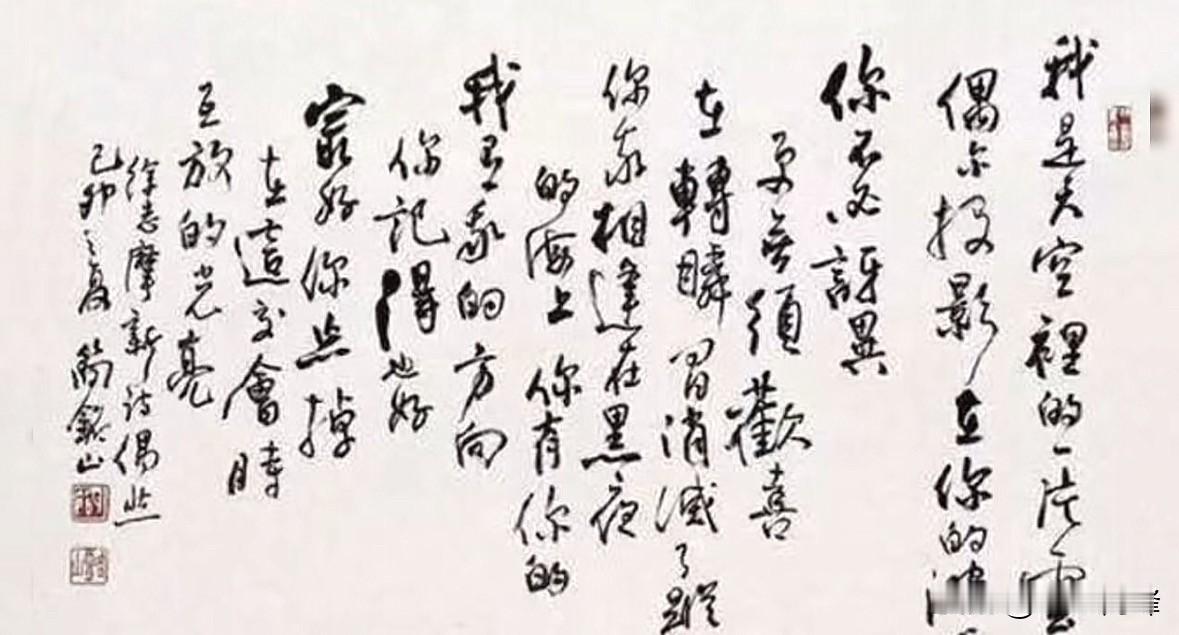 我是天空裡的一片雲
偶尔投影在你的波
你不必訝異
更無須歡喜
在轉瞬間消滅了蹤
你我相逢在黑夜
的海上 你有你的
我有我的方向
你記得也好
最好你忘掉
在這交會時
互放的光亮
徐志摩新詩偶然
己卯之夏 簡銘山